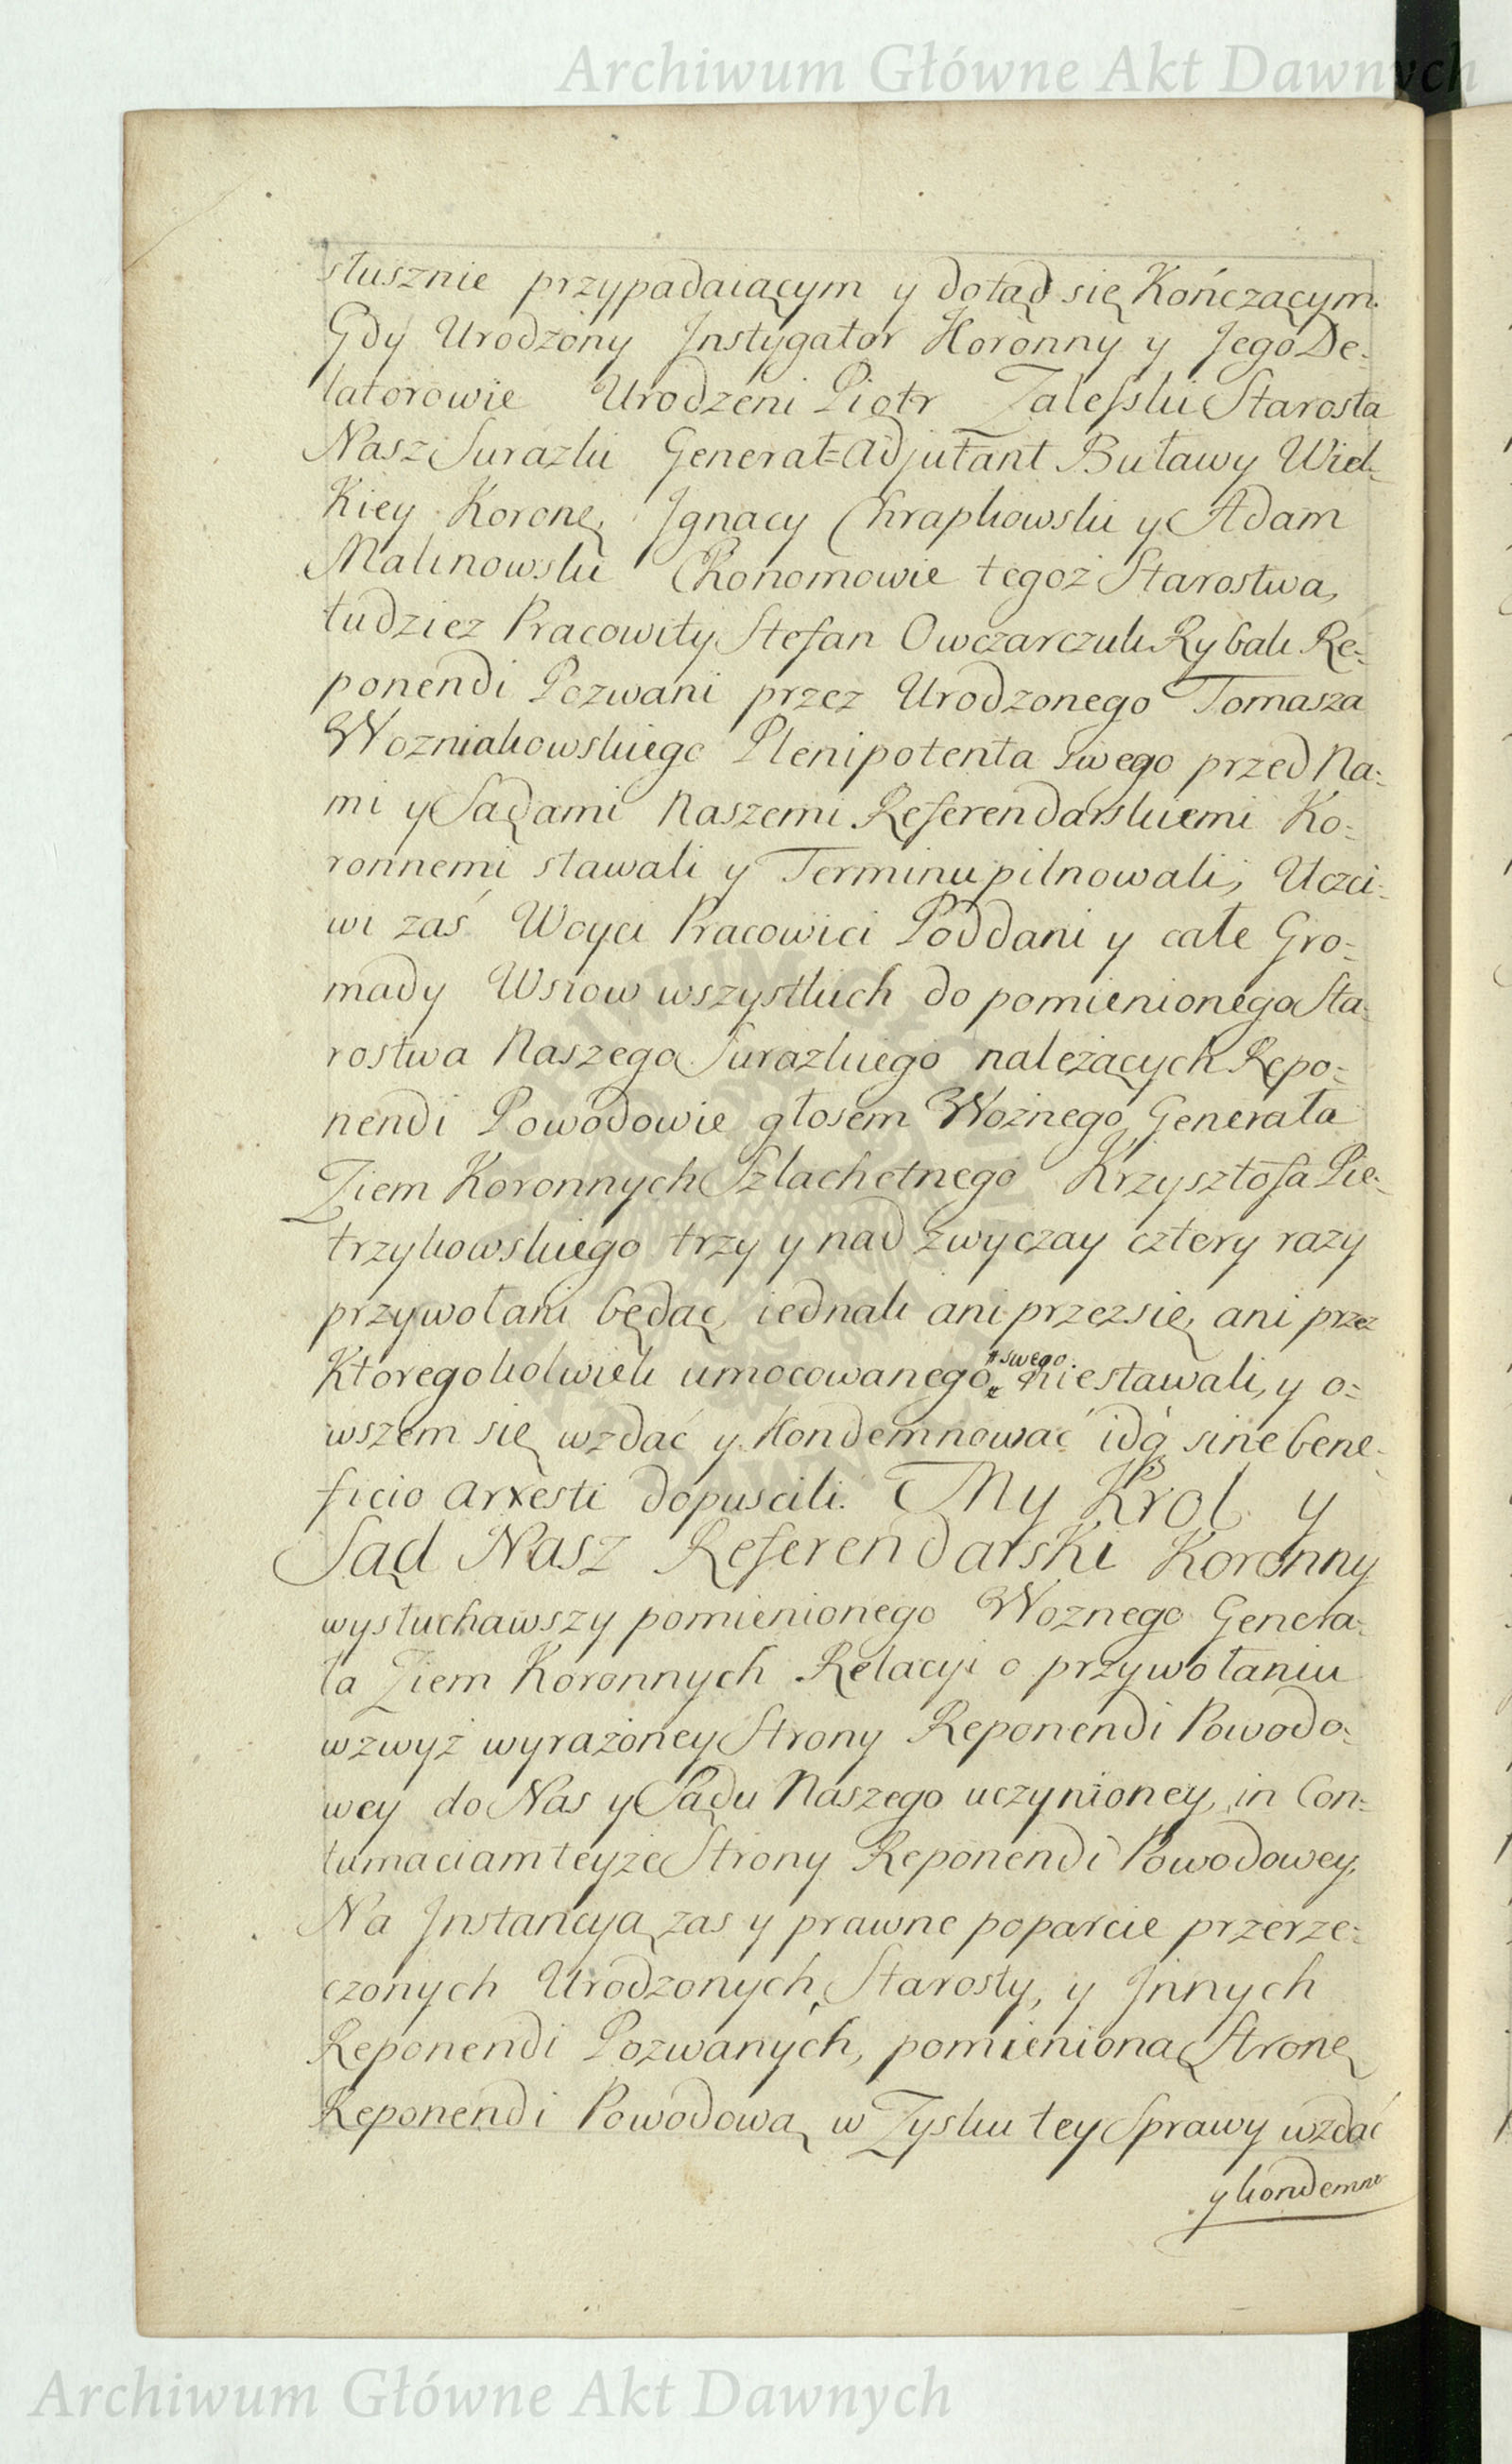 Archiwum Główne Akt Dawnych
słusznie przypadaiącym y dotąd się Kończącym.
Gdy Urodzony Jnstygator Koronny y Jego De-
latorowie Urodzeni Piotr Zalesski Starosta
Nasz Surazki Generał=Adjutant Buławy Wiel-
kiey Koronę, Jgnacy Chrapkowski y Adam
Malinowski Ekonomowie tegoż Starostwa,
tudziez Pracowity Stefan Owczarczuk Rybak Re-
ponendi Pozwani przez Urodzonego Tomasza
Wozniakowskiego Plenipotenta swego przed Na-
mi y Sądami Naszemi Referendarskiemi Ko-
ronnemi stawali y Terminu pilnowali, Uczci-
wi zaś Woyci Pracowici Poddani y całe Gro-
mady Wsiow wszystkich do pomienionego Sta-
rostwa Naszego Surazkiego należących Repo-
nendi Powodowie głosem Woźnego Generała
Ziem Koronnych Szlachetnego Krzysztofa Pie-
trzykowskiego trzy y nad zwyczay cztery razy
przywołani będąc, iednak ani przez się, ani przez
Ktoregokolwiek umocowanego swego niestawali, y o-
wszem się wzdać y Kondemnować idq́ sine bene-
ficio arresti dopuscili. My Krol y
Sąd Nasz Referendarski Koronny
wysłuchawszy pomienionego Woznego Genera-
ła Ziem Koronnych Relacyi o przywołaniu
wzwyż wyrażoney Strony Reponendi Powodo-
wey do Nas y Sądu Naszego uczynioney, in Con-
tumaciam teyże Strony Reponendi Powodowey,
Na Jnstancyą zas y prawne poparcie przerze-
czonych Urodzonych, Starosty, y Jnnych
Reponendi Pozwanych, pomienioną Stronę
Reponendi Powodową w Zysku tey Sprawy wzdać
y kondemno
Archiwum Główne Akt Dawnych